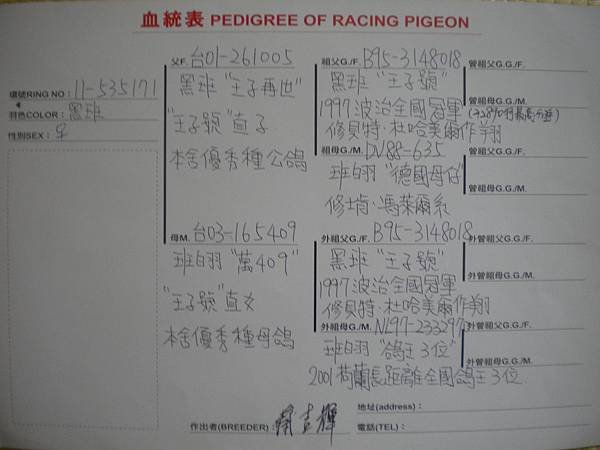 血統表 PEDIGREE OF RACING PIGEON
環號RING NO：11-535171
羽色COLOR：黑班
性別SEX：♀
父F. 台01-261005
黑班 "王子再世"
"王子號" 直子
本舍優秀種公鴿
母M. 台03-165409
班白羽 "萬409"
"王子號" 直女
本舍優秀種母鴿
祖父G./F. B95-3148018
黑班 "王子號"
1997波治全國冠軍
修貝特·杜哈美爾作翔
祖母G./M. DV88-635
班白羽 "德國母仔"
修肯·馮萊爾系
外祖父G./F. B95-3148018
黑班 "王子號"
1997波治全國冠軍
修貝特·杜哈美爾作翔
外祖母G./M. NL97-2332971
班白羽 "鴿王3位"
2001荷蘭長距離全國鴿王3位
曾祖父G.G./F.
曾祖母G.G./M.
曾祖父G.G./F.
曾祖母G.G./M.
外曾祖父G.G./F.
外曾祖母G.G./M.
外曾祖父G.G./F.
外曾祖母G.G./M.
作出者(BREEDER)：
地址(address)：
電話(TEL)：